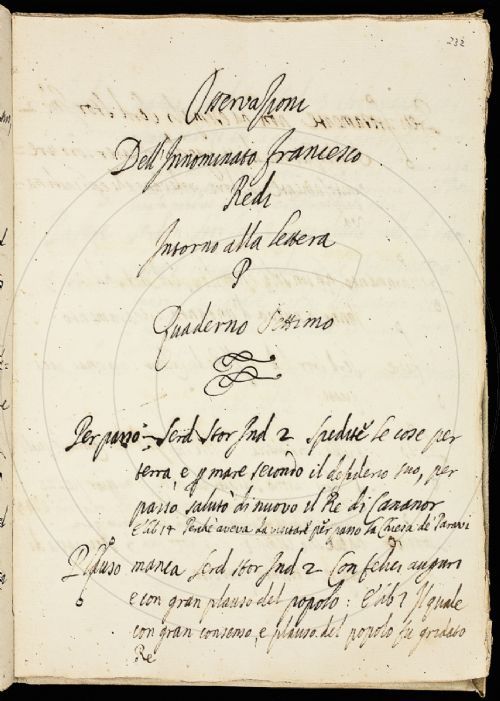 232
Osservazioni
Dell'Innominato Francesco
Redi
Intorno alla lettera
P
Quaderno Settimo
Per passo Serd Stor Ind 2 spedite le cose per
terra, e p mare secondo il desiderio suo, per
passo salutò di nuovo il Re di Cananor
E lib 14 Perche aveva da visitare per passo la Chiesa de
Plauso manca Serd Stor Ind 2 Con felici auguri
e con gran plauso del popolo: E lib 7 Il quale
con gran consenso, e plauso del popolo fu gridato
Re